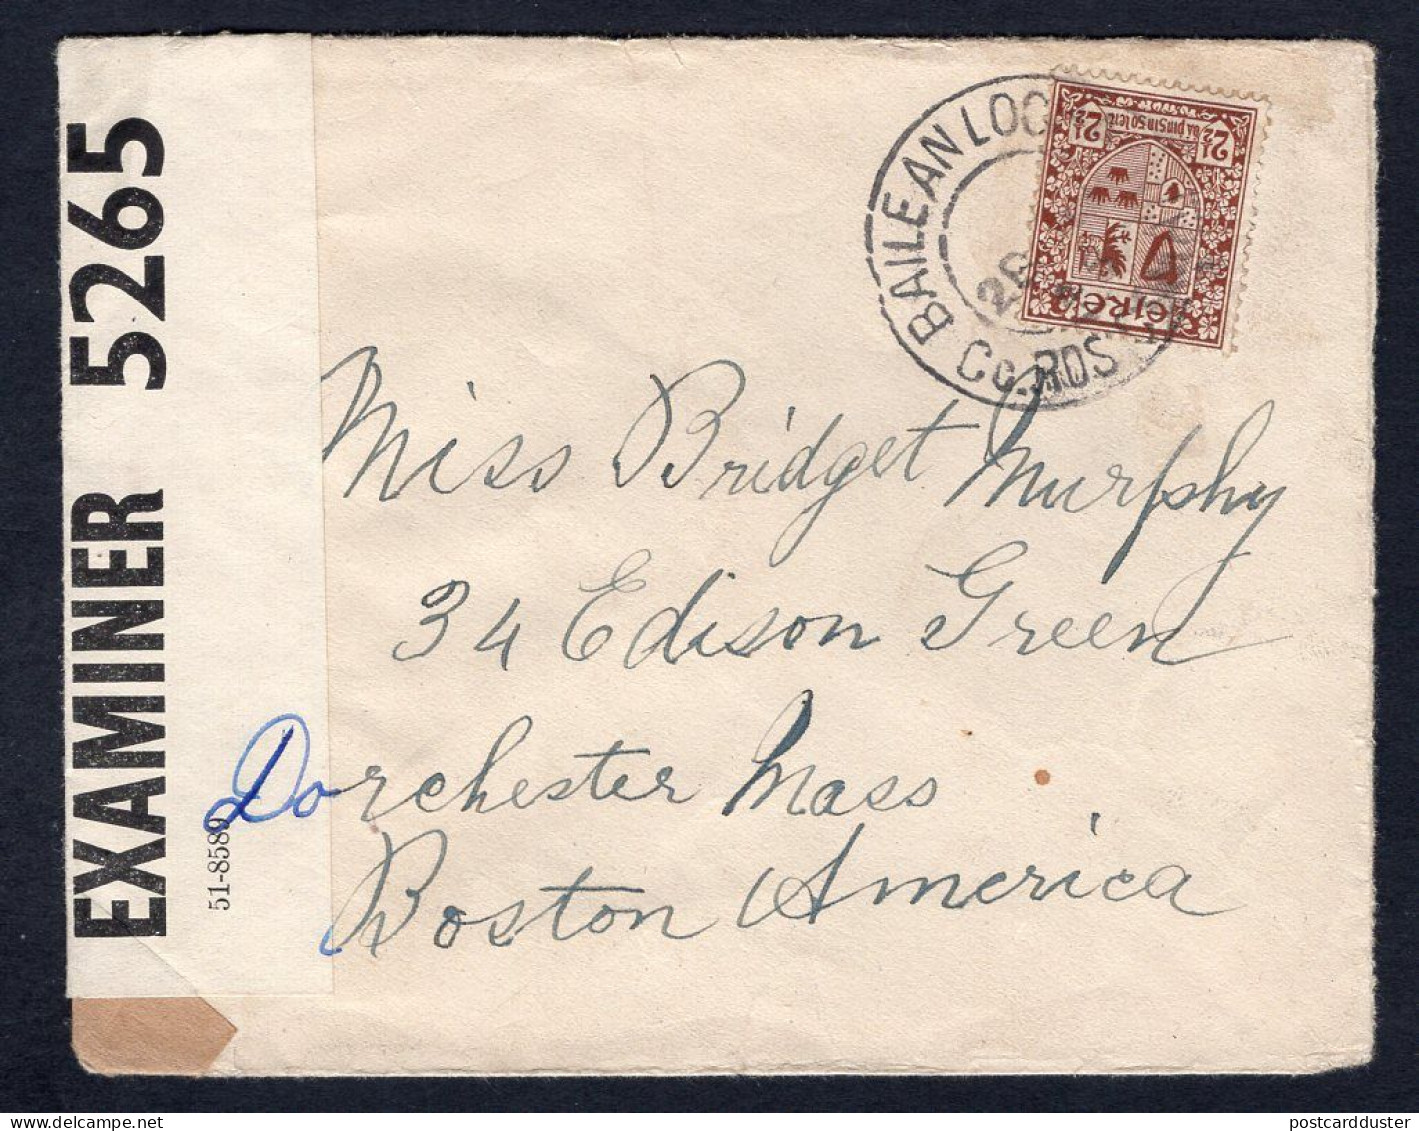 EXAMINER 5265
51-8589
BAILE AN LOC
Co. ROS
2½ 2½
éire
Miss Bridget Murphy
34 Edison Green
Dorchester Mass
Boston America
postcardduster